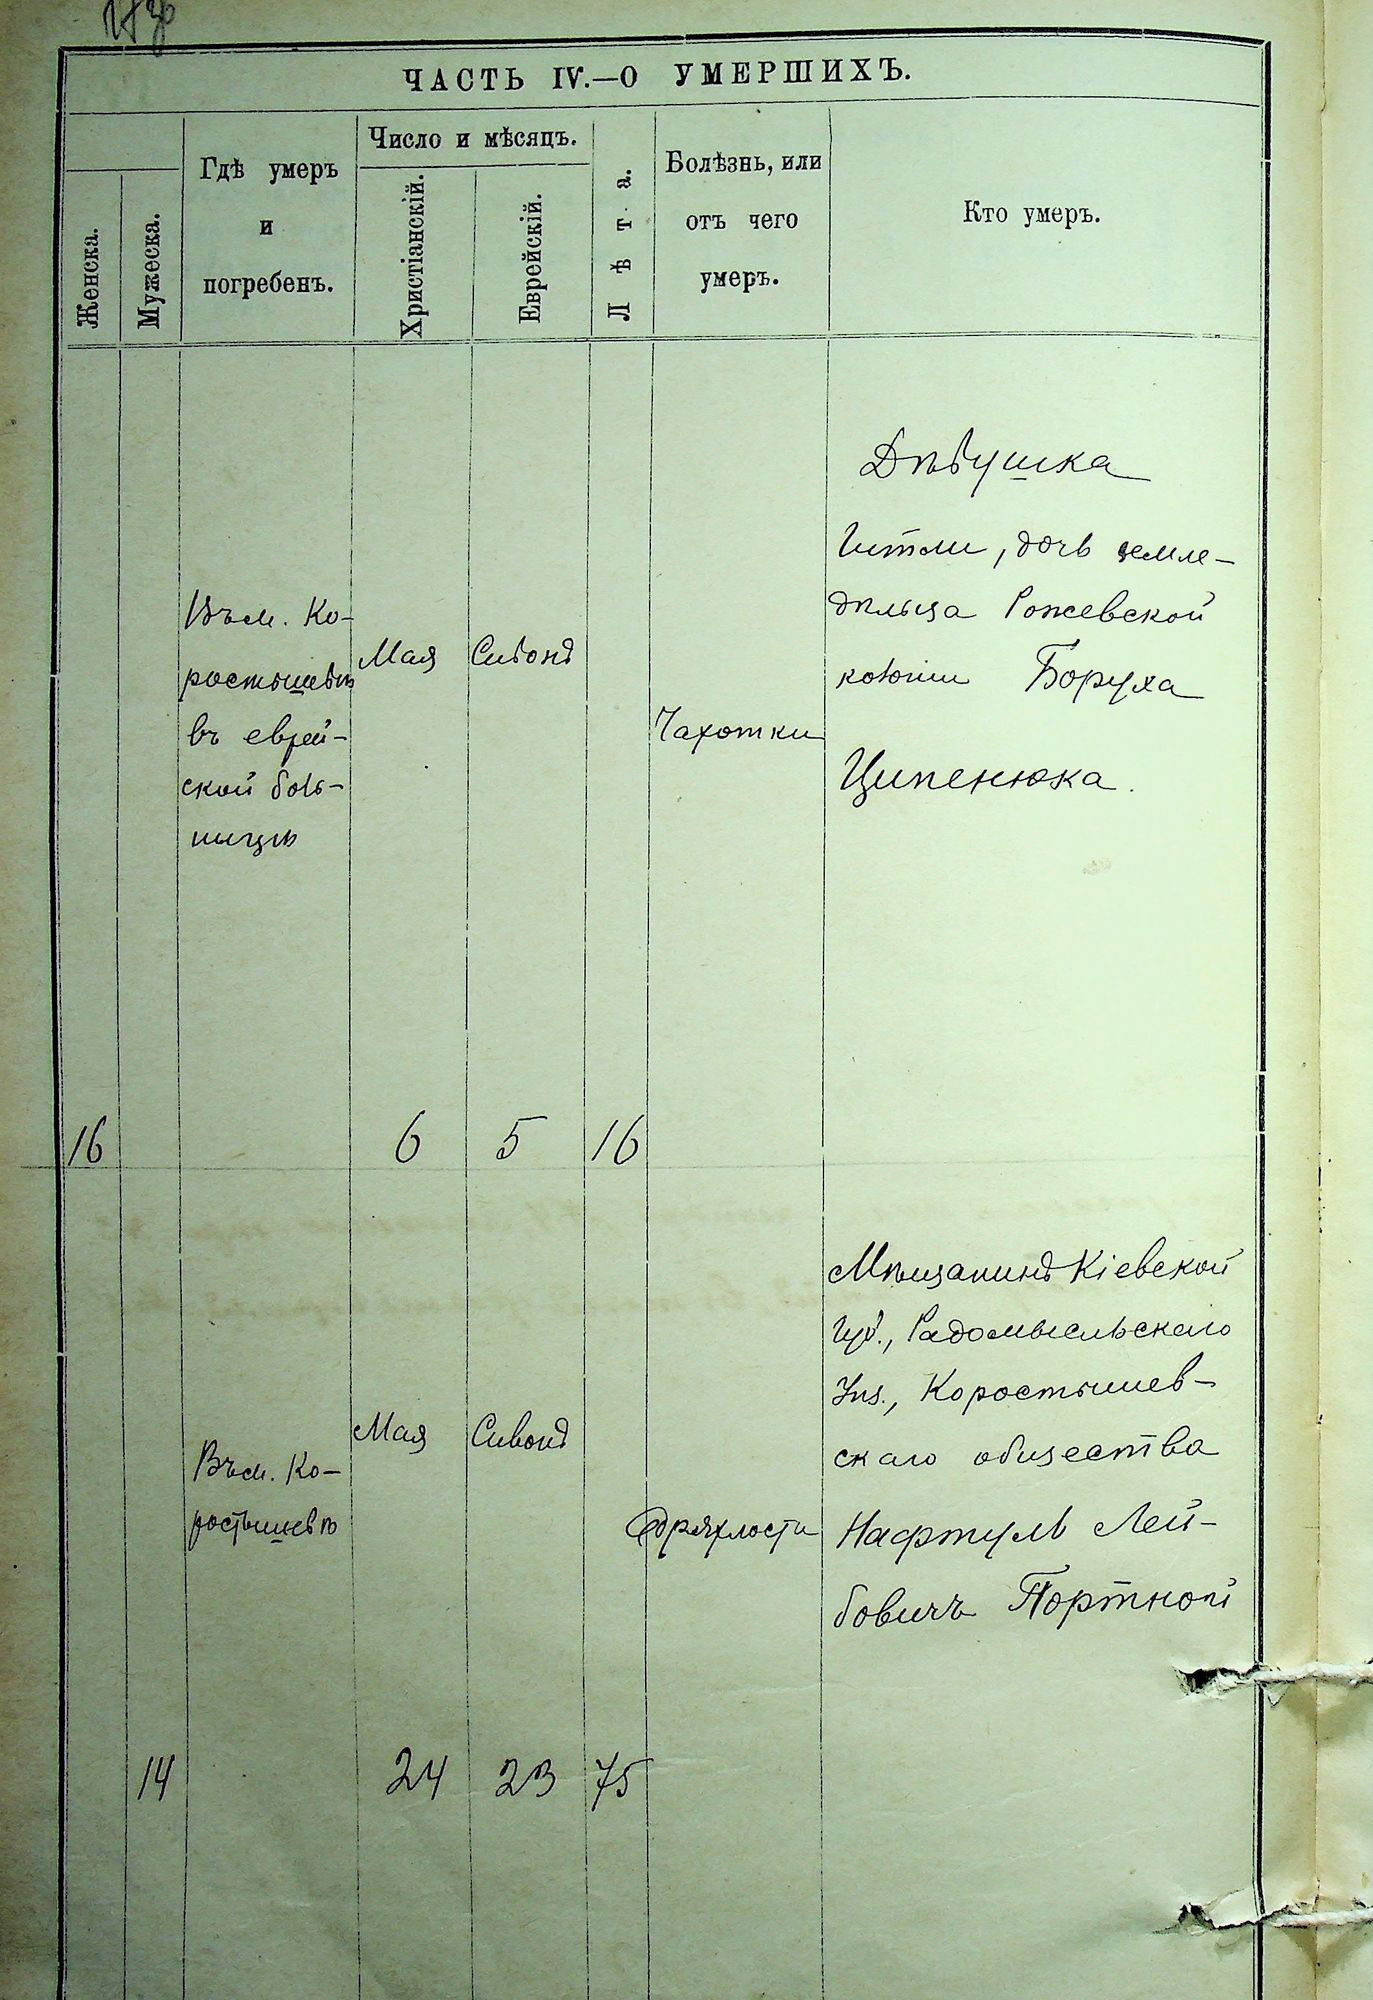 ЧАСТЬ IV.—О УМЕРШИХЪ.
Женска.
Мужеска.
Гдѣ умеръ
и
погребенъ.
Число и мѣсяцъ.
Христіанскій.
Еврейскій.
Лѣта.
Болѣзнь, или
отъ чего
умеръ.
Кто умеръ.
16
Въ м. Ко-
ростышевѣ
въ еврей-
ской боль-
ницѣ
Мая
6
Сивонъ
5
16
Чахотки
Дѣвушка
Гитли, дочь земле-
дѣльца Рожевской
колоніи Боруха
Ципенюка.
14
Въ м. Ко-
ростышевѣ
Мая
24
Сивонъ
23
75
Дряхлости
Мѣщанинъ Кіевской
Губ., Радомысльскаго
Уѣз., Коростышев-
скаго общества
Нафтуль Лей-
бовичъ Портной